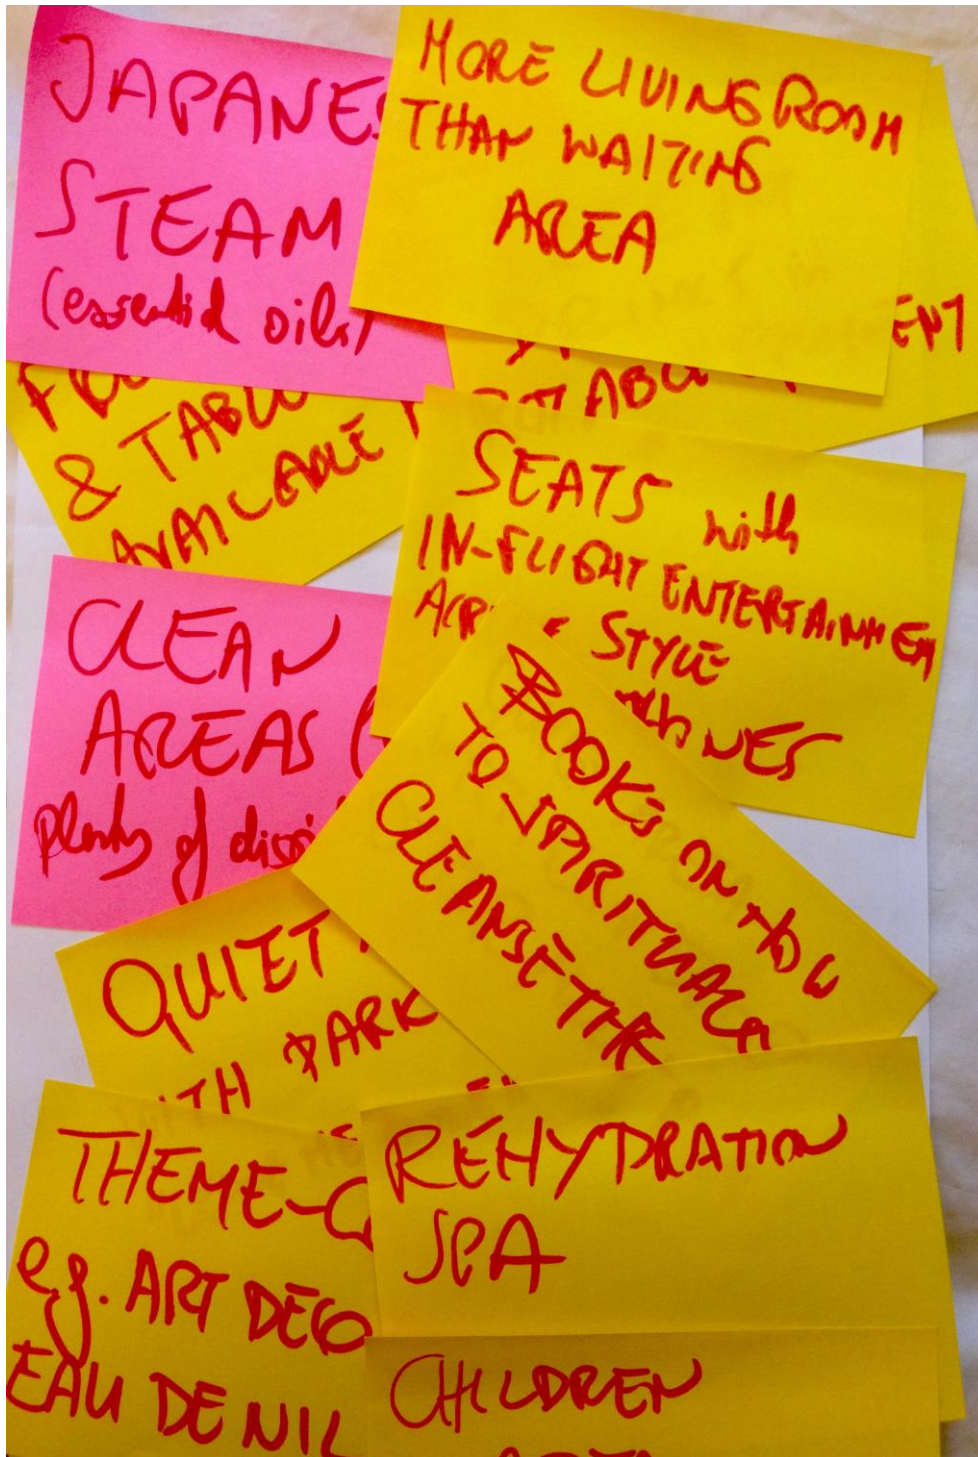 JAPANES
STEAM
(essential oils)
MORE LIVING ROOM
THAN WAITING
AREA
ENT
& TABL
AVAILABLE
SEATS with
IN-FLIGHT ENTERTAINMEN
STYLE
CLEAN
AREAS (
plenty of
BOOKS ON HOW
TO SPIRITUAL
CLEANSE THE
QUIET
WITH DARK
THEME-C
e.g. ART DECO
EAU DE NIL
REHYDRATION
SPA
CHILDREN